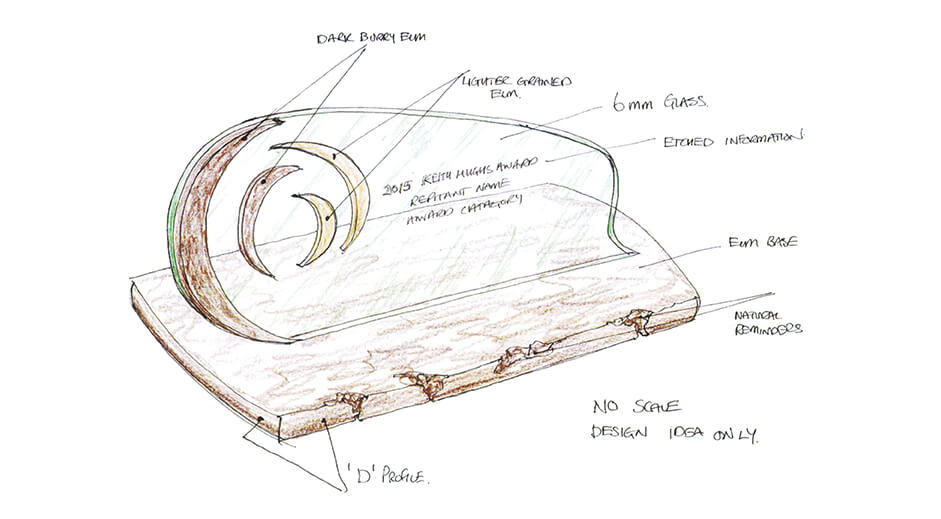 DARK BURRY ELM
LIGHTER GRAINED
ELM.
6mm GLASS.
ETCHED INFORMATION
2015 KEITH HUGHS AWARD
REPITANT NAME
AWARD CATAGORY
ELM BASE
NATURAL
REMINDERS
NO SCALE
DESIGN IDEA ONLY.
'D' PROFILE.